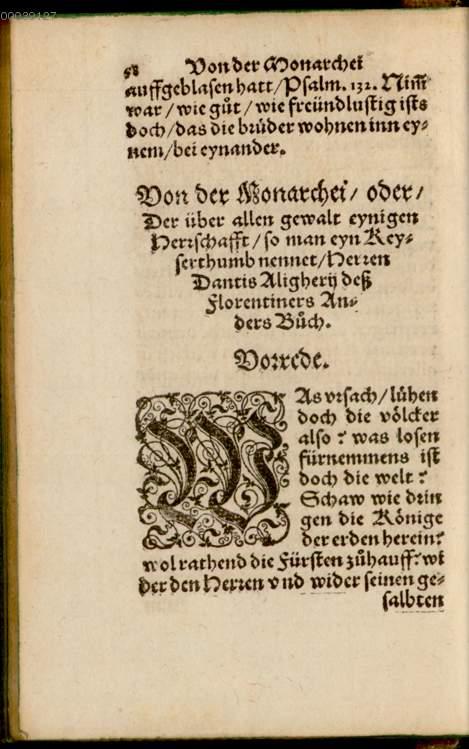 00039187
58 Von der Monarchei
auffgeblasen hatt/Psalm. 132. Nim̃
war/wie gůt/wie freündlustig ists
doch/das die brüder wohnen inn ey⸗
nem/bei eynander.
Von der Monarchei/oder/
Der über allen gewalt eynigen
Herrschafft/so man eyn Key⸗
serthumb nennet/Herren
Dantis Aligherij deß
Florentiners An⸗
ders Bůch.
Vorrede.
WAs vrsach/lühen
doch die völcker
also? was losen
fürnemmens ist
doch die welt?
Schaw wie drin
gen die Könige
der erden herein?
wol rathend die Fürsten zůhauff? wi
der den Herren vnd wider seinen ge⸗
salbten